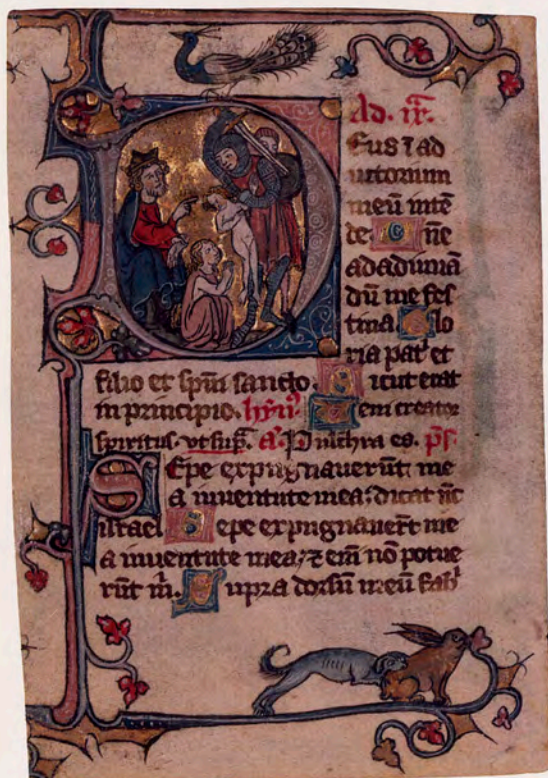 Ad. ix.
Eus ī ad
iutorium
meū intē
de. Dñe
ad adiuuā
dū me fes
tina. Glo
ria pat' et
filio et spūi sancto. Sicut erat
in principio. hȳn'. Veni creator
spiritus. vt sup̄. a'. Pulchra es. p̄s.
Sepe expugnauerūt me
a iuuentute mea: dicat nc̄
israel. Sepe expugnauerūt me
a iuuentute mea: ⁊ em̄ nō potue
rūt m̄. Supra dorsū meū fab'